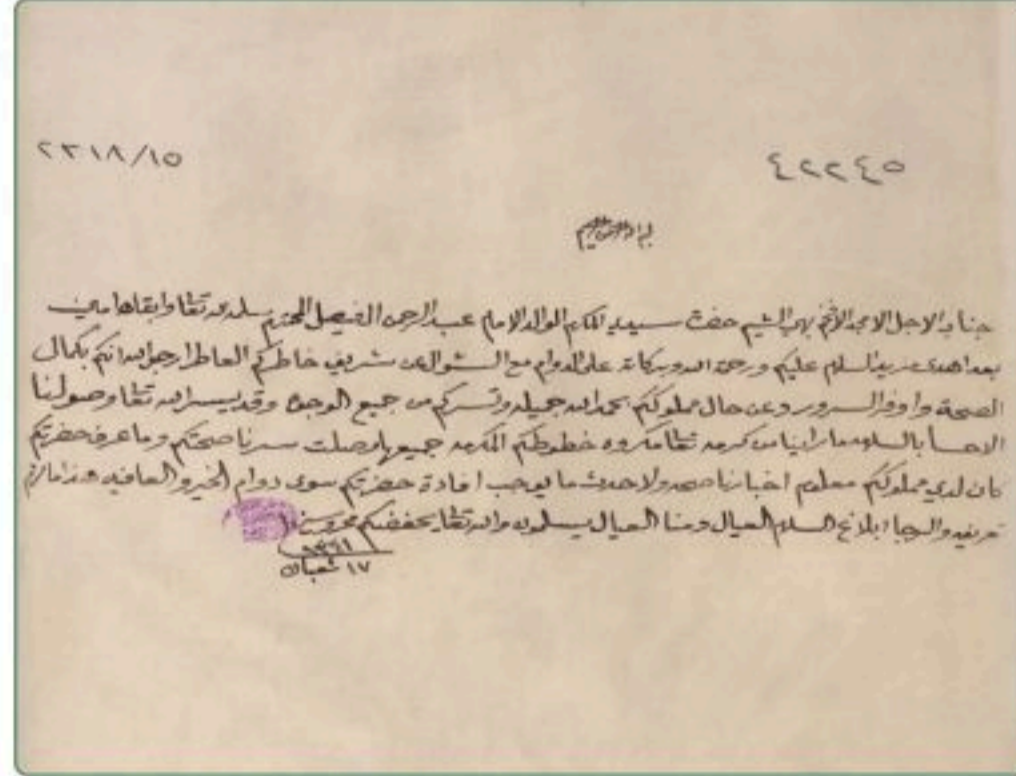 ٢٣١٨/١٥
٤٢٢٤٥
بسم الله الرحمن الرحيم
جناب الاجل الامجد الافخم بهي الشيم حضرت سيدي المكرم الوالد الامام عبد الرحمن الفيصل المحترم سلمه الله تعا وابقاه امين
بعد اهدى مزيد السلام عليكم ورحمة الله وبركاته على الدوام مع السئوال عن شريف خاطركم العاطر ارجوا الله انكم بكمال
الصحة واوفر السرور وعن حال مملوككم بحمد الله جميله وتسركم من جميع الوجوه وقد يسر الله تعا وصولنا
الاحسا بالسلامه ما راينا من كرمه تعا مكروه خطوطكم المكرمه جميعها وصلت سرنا صحتكم وما عرف حضرتكم
كان لدي مملوككم معلوم اخبارنا صحه ولا حدث ما يوجب افادة حضرتكم سوى دوام الخير والعافيه هذا ما لزم
تعريفه والرجا ابلاغ السلام العيال ومنا العيال يسلمون والله تعا يحفظكم محروسين
١٧ شعبان